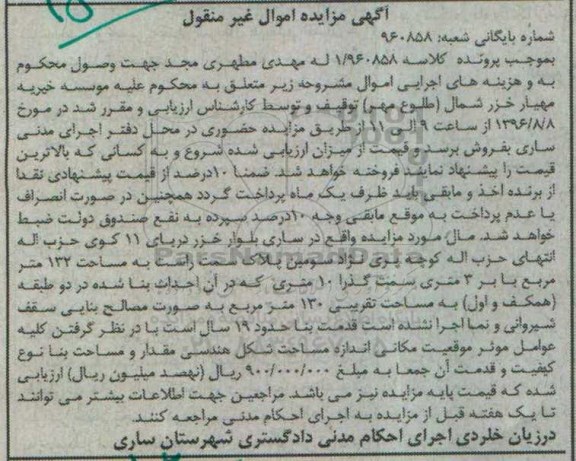 آگهی مزایده اموال غیر منقول
شماره بایگانی شعبه: ۹۶۰۸۵۸
بموجب پرونده کلاسه ۱/۹۶۰۸۵۸ له مهدی مطهری مجد جهت وصول محکوم
به و هزینه های اجرایی اموال مشروحه زیر متعلق به محکوم علیه موسسه خیریه
مهیار خزر شمال (طلوع مهر) توقیف و توسط کارشناس ارزیابی و مقرر شد در مورخ
۱۳۹۶/۸/۸ از ساعت ۹ الی از طریق مزایده حضوری در محل دفتر اجرای مدنی
ساری بفروش برسد و قیمت از میزان ارزیابی شده شروع و به کسانی که بالاترین
قیمت را پیشنهاد نمایند فروخته خواهد شد. ضمنا ۱۰درصد از قیمت پیشنهادی نقدا
از برنده اخذ و مابقی باید ظرف یک ماه پرداخت گردد همچنین در صورت انصراف
یا عدم پرداخت به موقع مابقی وجه ۱۰درصد سپرده به نفع صندوق دولت ضبط
خواهد شد. مال مورد مزایده واقع در ساری بلوار خزر دریای ۱۱ کوی حزب اله
انتهای حزب اله کوچه پری نژاد سومین پلاک سمت راست به مساحت ۱۳۲ متر
مربع با بر ۳ متری بسمت گذر ۱۰ متری که در آن احداث بنا شده در دو طبقه
(همکف و اول) به مساحت تقریبی ۱۳۰ متر مربع به صورت مصالح بنایی سقف
شیروانی و نما اجرا نشده است قدمت بنا حدود ۱۹ سال است با در نظر گرفتن کلیه
عوامل موثر موقعیت مکانی اندازه مساحت شکل هندسی مقدار و مساحت بنا نوع
کیفیت و قدمت آن جمعا به مبلغ ۹۰۰/۰۰۰/۰۰۰ ریال (نهصد میلیون ریال) ارزیابی
شده که قیمت پایه مزایده نیز می باشد. مراجعین جهت اطلاعات بیشتر می توانند
تا یک هفته قبل از مزایده به اجرای احکام مدنی مراجعه کنند.
درزیان خلردی اجرای احکام مدنی دادگستری شهرستان ساری